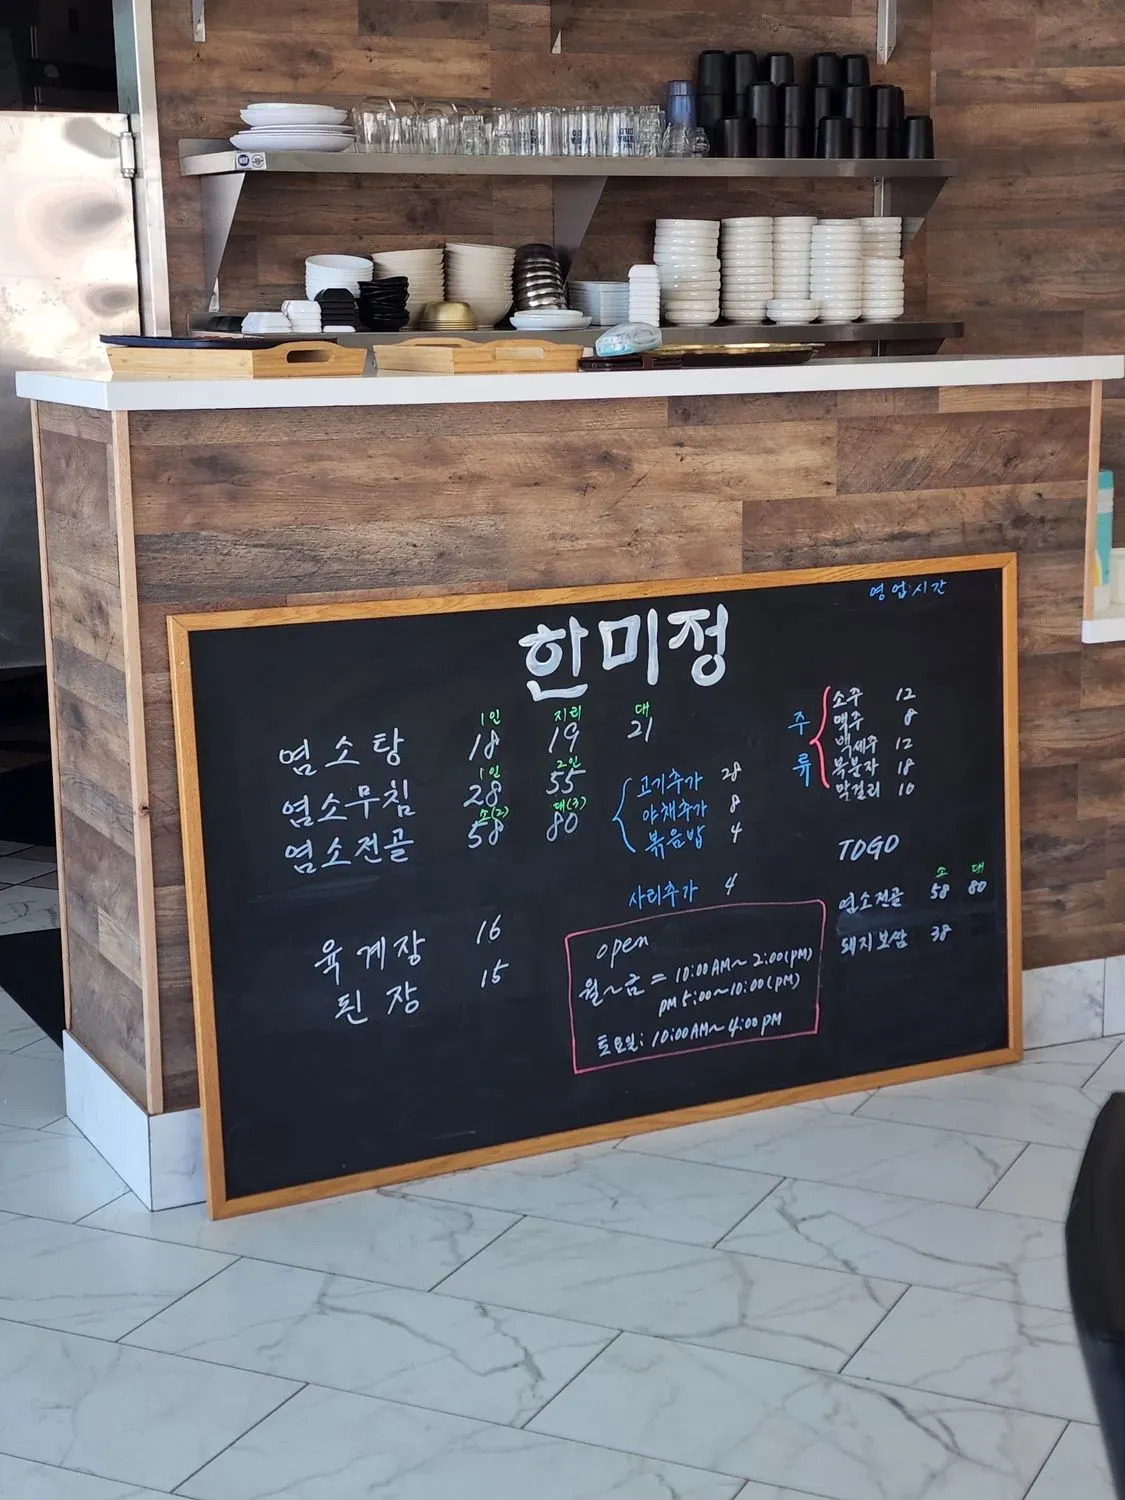 영업시간
한미정
1인 지리 대
염소탕 18 19 21
1인 2인
염소무침 28 55
소(2) 대(3)
염소전골 58 80
고기추가 28
야채추가 8
볶음밥 4
사리추가 4
육계장 16
된장 15
open
월~금 = 10:00AM~2:00(PM)
PM 5:00~10:00(PM)
토요일: 10:00AM~4:00PM
주류
소주 12
맥주 8
백세주 12
복분자 18
막걸리 10
TOGO
소 대
염소전골 58 80
돼지보쌈 38